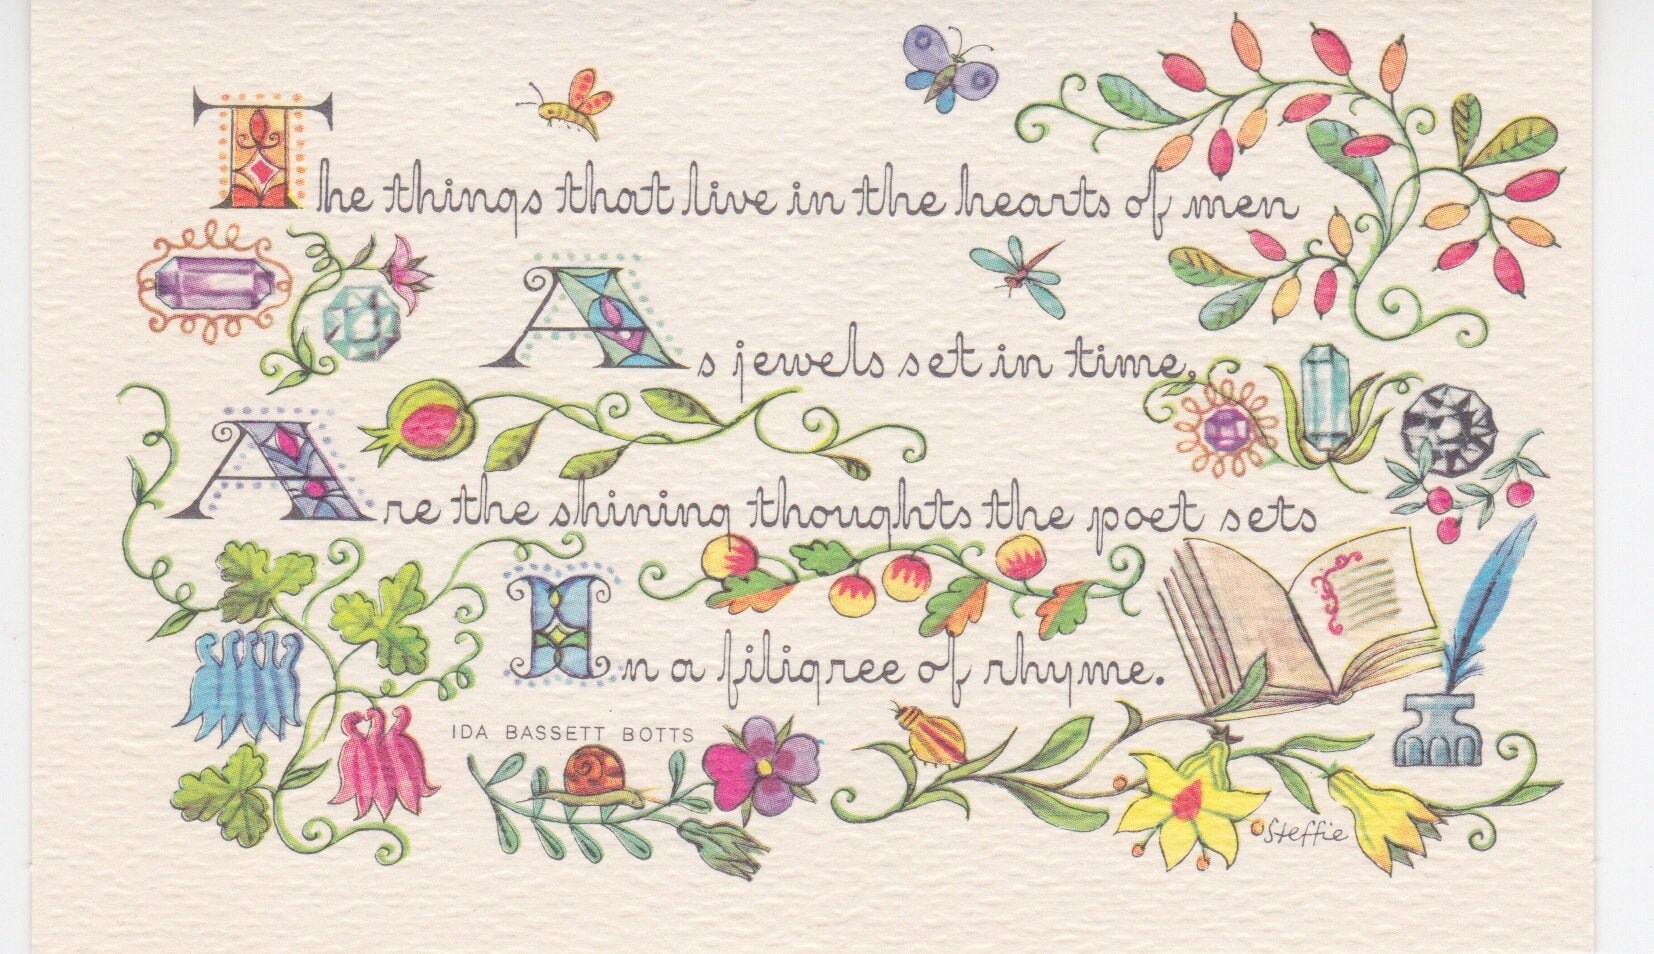 The things that live in the hearts of men
As jewels set in time,
Are the shining thoughts the poet sets
In a filigree of rhyme.
IDA BASSETT BOTTS
Steffie